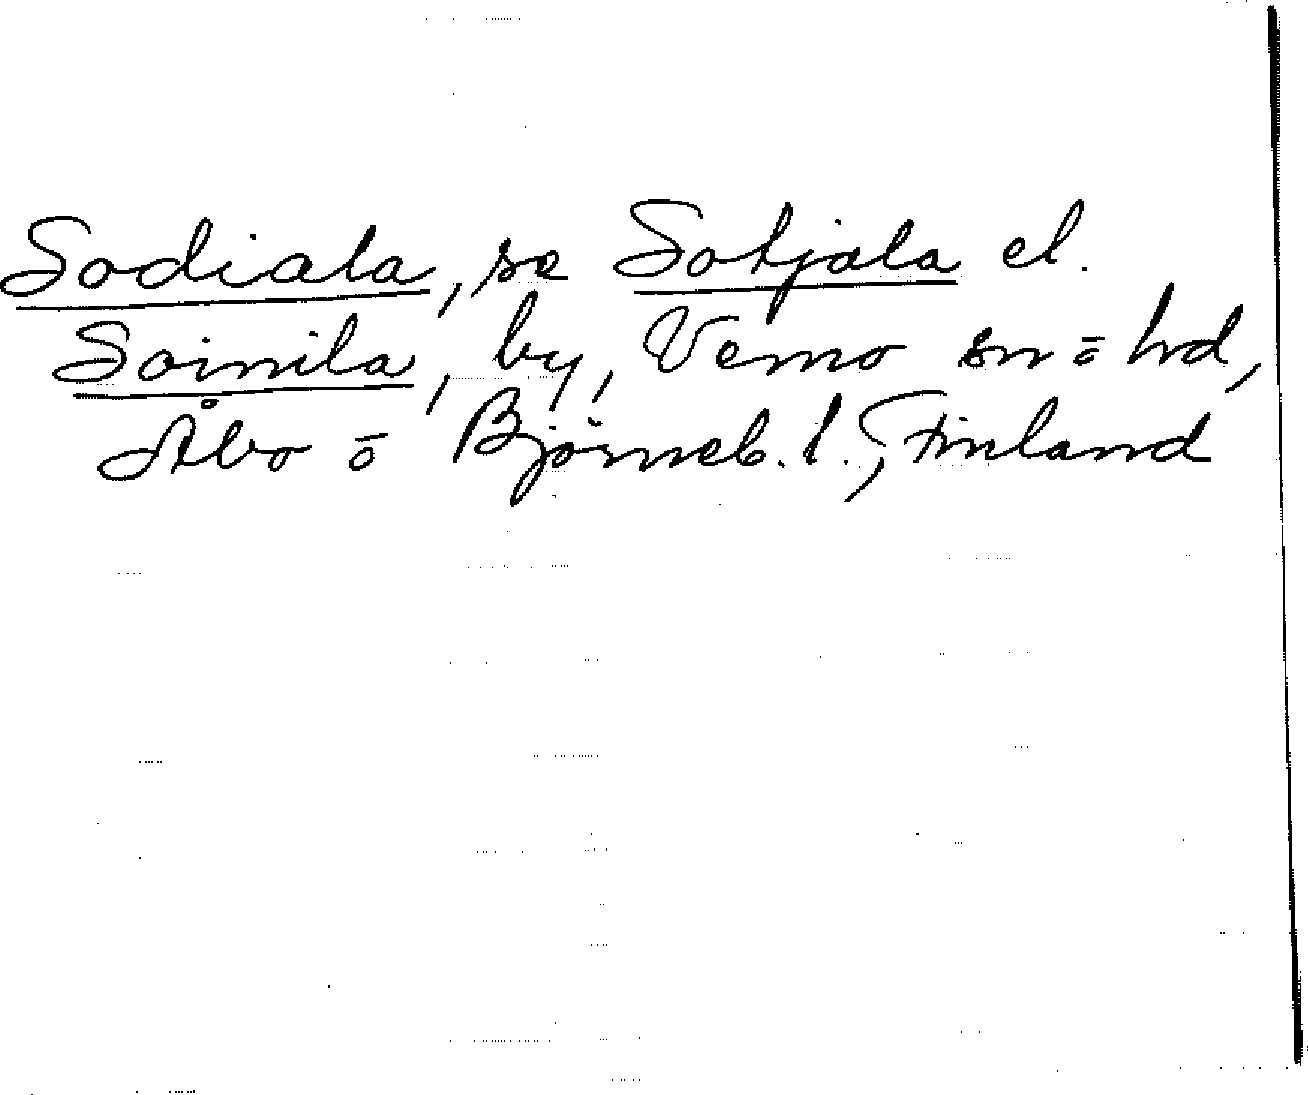 Sodiala, se Sohjala el.
Soinila, by, Vemo sn ō hd,
Åbo ō Björneb. l., Finland